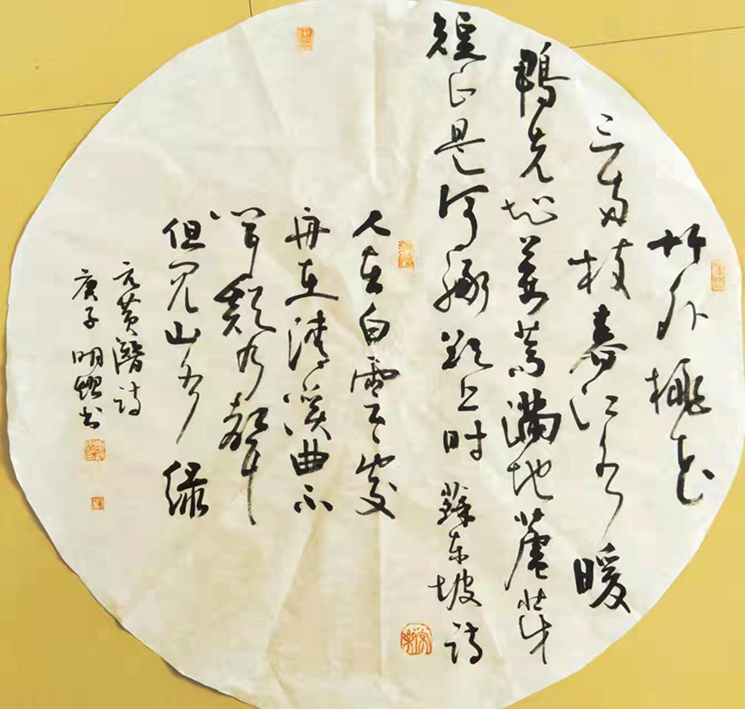 竹外桃花
三两枝春江水暖
鴨先知蒌蒿满地蘆芽
短正是河豚欲上时 蘇东坡诗
人在白雲处
舟在清溪曲不
闻欸乃声
但见山水绿
元黄潛诗
庚子 明书